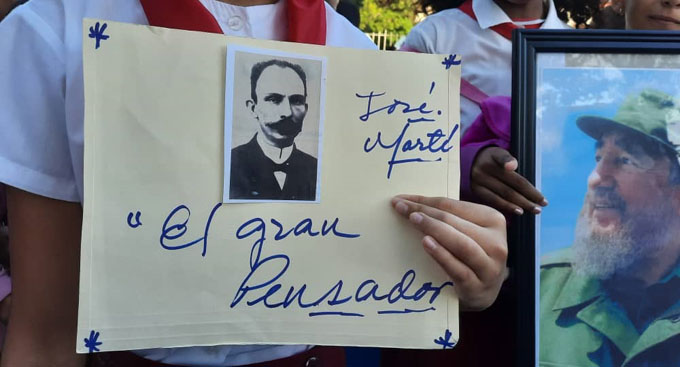 José.
Martí
"El gran
Pensador